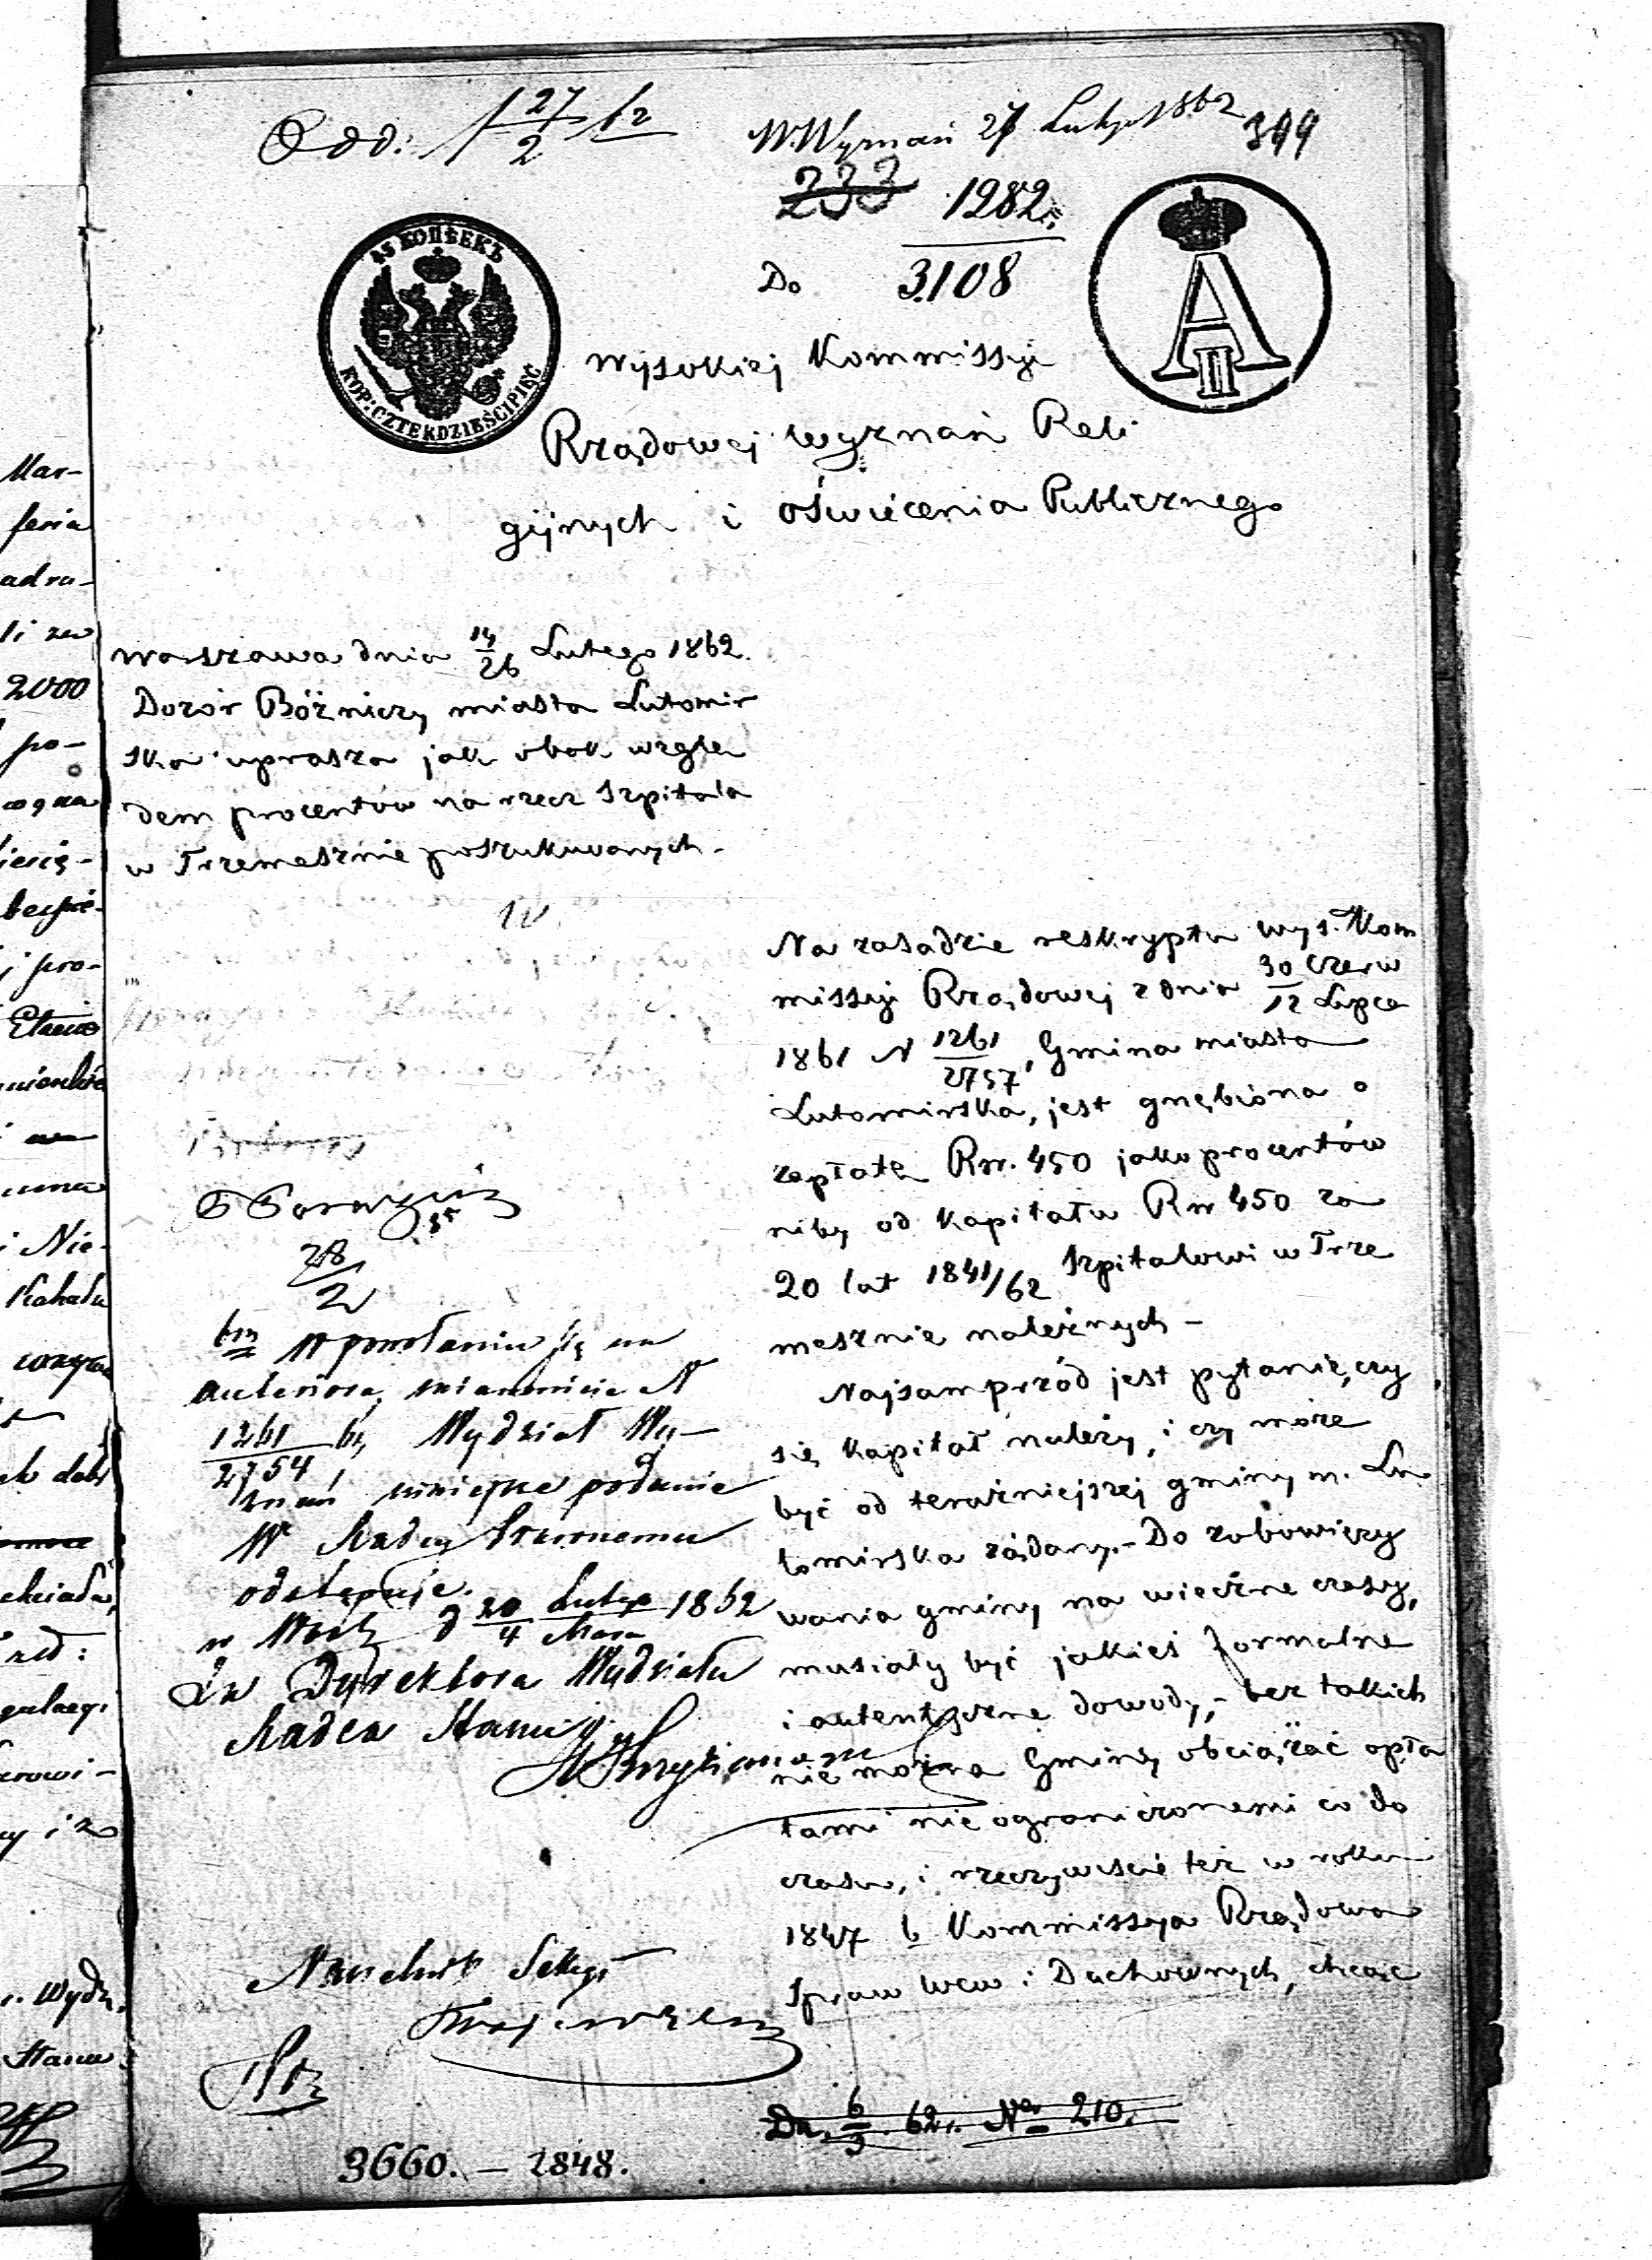 Odd: 27/2 62
W. Wyznań 27 Lutego 1862
399
233 1982
Do 3108
45 КОПѢЕКЪ
KOP: CZTERDZIEŚCI PIĘĆ
A II
Wysokiej Kommissyi
Rządowej Wyznań Reli
gijnych i Oświecenia Publicznego
Warszawa dnia 14/26 Lutego 1862.
Dozór Bóżniczy miasta Lutomir
ska uprasza jak obok wzglę
dem procentów na rzecz Szpitala
w Trzemesznie poszukiwanych.
Na zasadzie reskryptu Wys. Kom
missyi Rządowej z dnia 30 Czerw
12 Lipca
1861 N 1261/2757, Gmina miasta
Lutomirska, jest gnębiona o
zapłatę Rsr. 450 jako procentów
niby od kapitału Rsr 450 za
20 lat 1841/62 Szpitalowi w Trze
mesznie należnych –
Najsamprzód jest pytanie, czy
się kapitał należy, i czy może
być od teraźniejszej gminy m. Lu
tomirska żądany. – Do zobowięzy
wania gminy na wieczne czasy,
musiały być jakieś formalne
i autentyczne dowody, – bez takich
nie można Gminy obciążać opła
tami nie ograniczonemi co do
czasu, i rzeczywiście też w roku
1847 b Kommissya Rządowa
Spraw Wew i Duchownych, chcąc
28/2
W powołaniu się na
anteriora, mianowicie N
1261/2754 61, Wydział Wy-
znań niniejsze podanie
W Radcy Prawnemu
odstępuje.
w Warsz d 20 Lutego/4 Marca 1862
Za Dyrektora Wydziału
Radca Stanu
Naczelnik Sekcyi
Dn. 6/3 62 r. Nr 210.
3660. – 2848.
Mar-
feria
adra-
li za
2000
po-
pro-
i Nie-
Kahału
r. Wydz.
Stanu